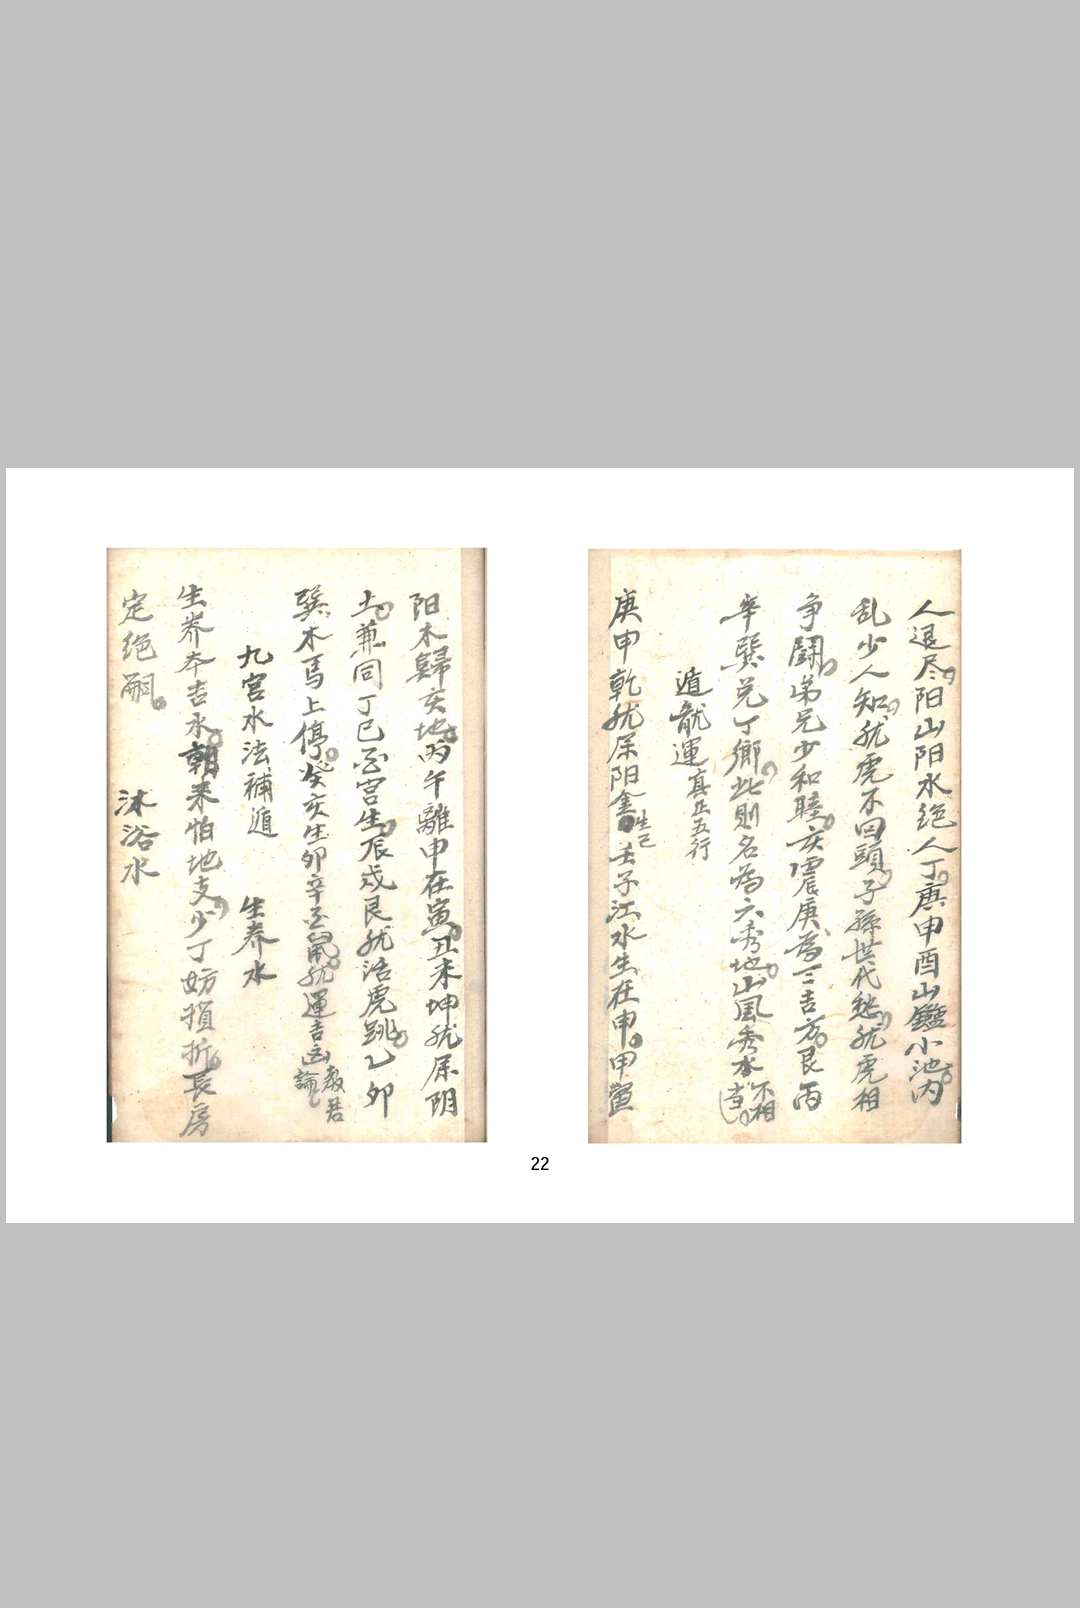 人退尽阳山阳水绝人丁庚申酉山鑑小池内
乱少人知龙虎不回頭子孫世代愁龙虎相
争鬪弟兄少和睦亥震庚為三吉方艮丙
辛巽兑丁鄉此則名為六秀地山風秀水不相
遁龍運真正五行
庚申乾龙属阳金生巳壬子江水生在申甲
阳木歸亥地丙午離申在寅丑未坤龙属阴
土兼同丁巳宫生辰戍艮龙活虎跳乙卯
巽木馬上停癸亥生卯辛至鼠龙運吉凶教君論
九宮水法補遁 生养水
生养本吉水朝来怕地支少丁妨損折長房
定绝嗣 沐浴水
22